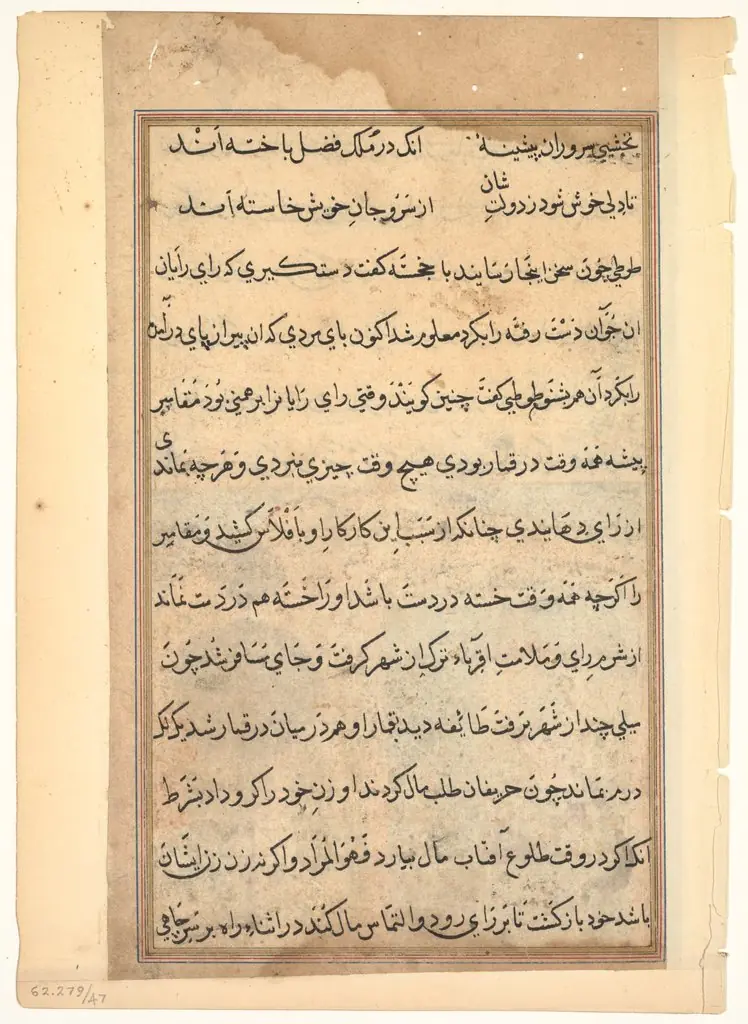 نخشبی سروران پیشینه انک در ملک فضل باخته اند
تا دلی خوش شود ز دولت شان از سر و جان خویش خاسته اند
طوطی چون سخن اینجا رسانید با خجسته کفت دستکیری که رای رایان
ان جوان دست رفته را بکرد معلوم شد اکنون بای مردی که ان پیر از پای درآمده
را بکرد آن هم بشنو طوطی کفت چنین کویند وقتی رای رایانرا برهمنی بود مقامر
پیشه همه وقت در قمار بودی هیچ وقت چیزی نبردی و هرچه نماندی
از رای دهانیدی چنانکه از سبب این کار کار او بافلاس کشید و مقامر
را اکرچه همه وقت خسته در دست باشد او را خسته هم در دست نماند
از شرم رای و ملامت اقرباء ترک از شهر کرفت و جای مسافر شد چون
میلی چند از شهر برفت طائفه دید بقمار او هم در میان در قمار شد یک لک
درم بماند چون حریفان طلب مال کردند او زن خود را کرو داد بشرط
انک اکر در وقت طلوع آفتاب مال بیارد فهو المراد و اکر نه زن زن ایشان
باشد خود بازکشت تا بر رای رود و التماس مال کند در اثناء راه بر سر چاهی
62.279/47